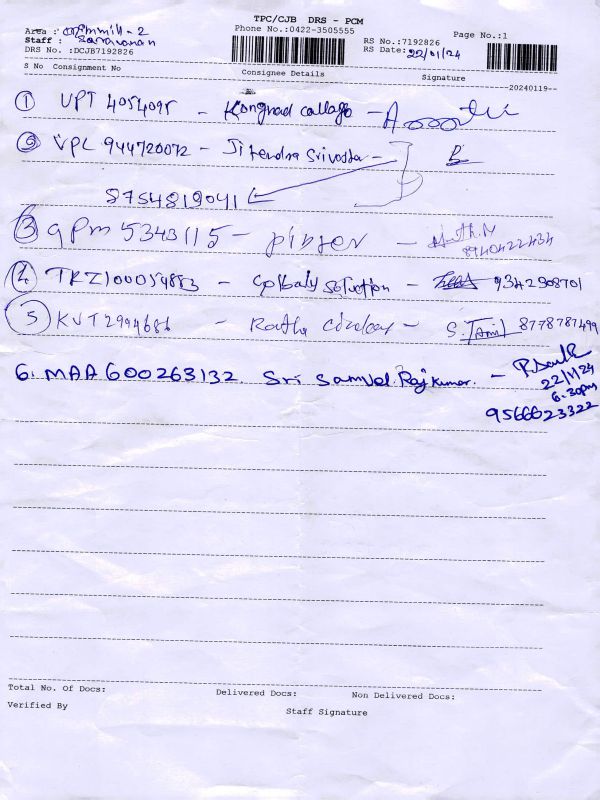 TPC/CJB DRS - PCM
Area : - 2
Phone No.:0422-3505555
Page No.:1
Staff : Saravanan
RS No.:7192826
DRS No. :DCJB7192826
RS Date: 22/01/24
S No Consignment No Consignee Details Signature
20240119--
① UPT 4054095 -
② VPL 944720072 - Jitendra
8754819041
③ 5343115 -
④ TRZ100054883 - 9342908701
⑤ KVT2994686 - Radha - S. Tamil 8778787499
6. MAA600263132. Sri Samvel Rajkumar. -
22/1/24
6.30pm
9566623322
Total No. Of Docs: Delivered Docs: Non Delivered Docs:
Verified By
Staff Signature